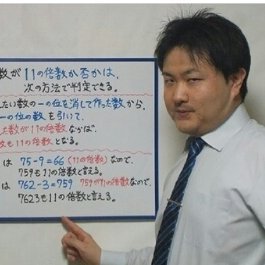 数が11の倍数か否かは、
次の方法で判定できる。
したい数の一の位を消して作った数から、
一の位の数を引いて、
した数が11の倍数ならば、
数も11の倍数となる。
は 75-9=66 (11の倍数) なので、
759も11の倍数と言える。
は 762-3=759 759が11の倍数なので、
7623も11の倍数と言える。